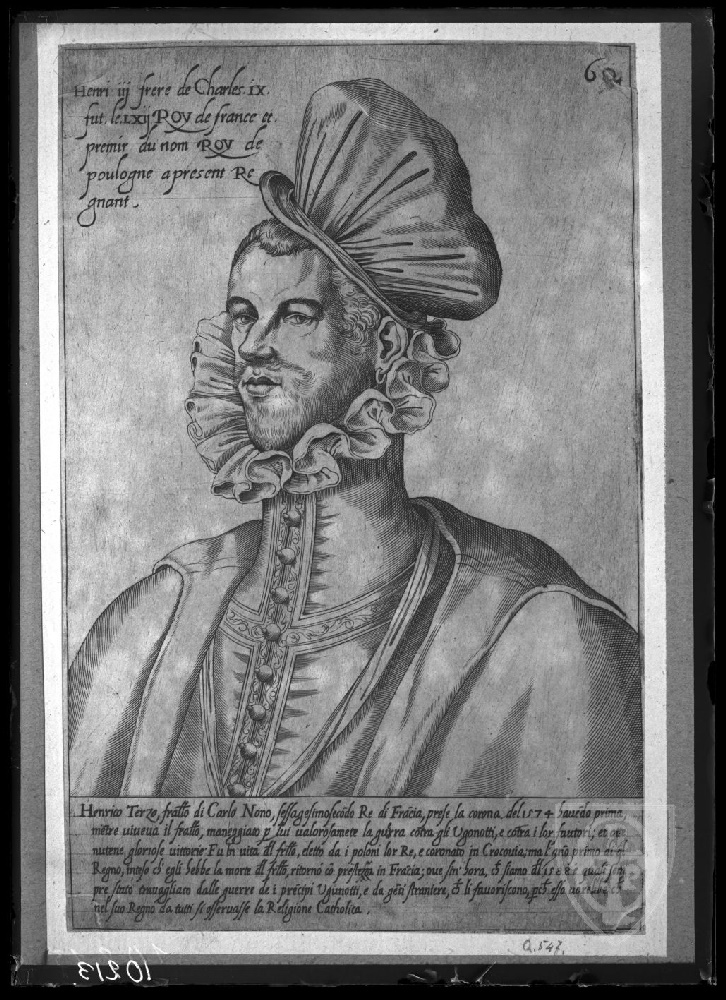 62
Henri iij frere de Charles IX.
fut le LXIJ ROY de france et
premir du nom ROY de
poulogne apresent Re
gnant.
Henrico Terzo, fratło di Carlo Nono, sessagesimosecōdo Re di Frācia, prese la corona del 1574 havēdo prima,
mētre viveva il fratło, maneggiato p lui valorosamēte la guerra cōtra gli Ugonotti, e cōtra i lor fautori; et
nutene gloriose vittorie. Fu in vita dl frłlo, detto da i poloni lor Re, e coronato in Crocovia; ma l'āno primo di
Regno, inteso ch egli hebbe la morte dl frłlo, ritornò cō prestezza in Frācia; ove sin' hora, ch siamo dl
pre stato travagliato dalle guerre de i prēcipi Uginotti, e da gēti straniere, ch li favoriscono,
nel suo Regno da tutti si osservasse la Religione Catholica.
Q.547.
10213